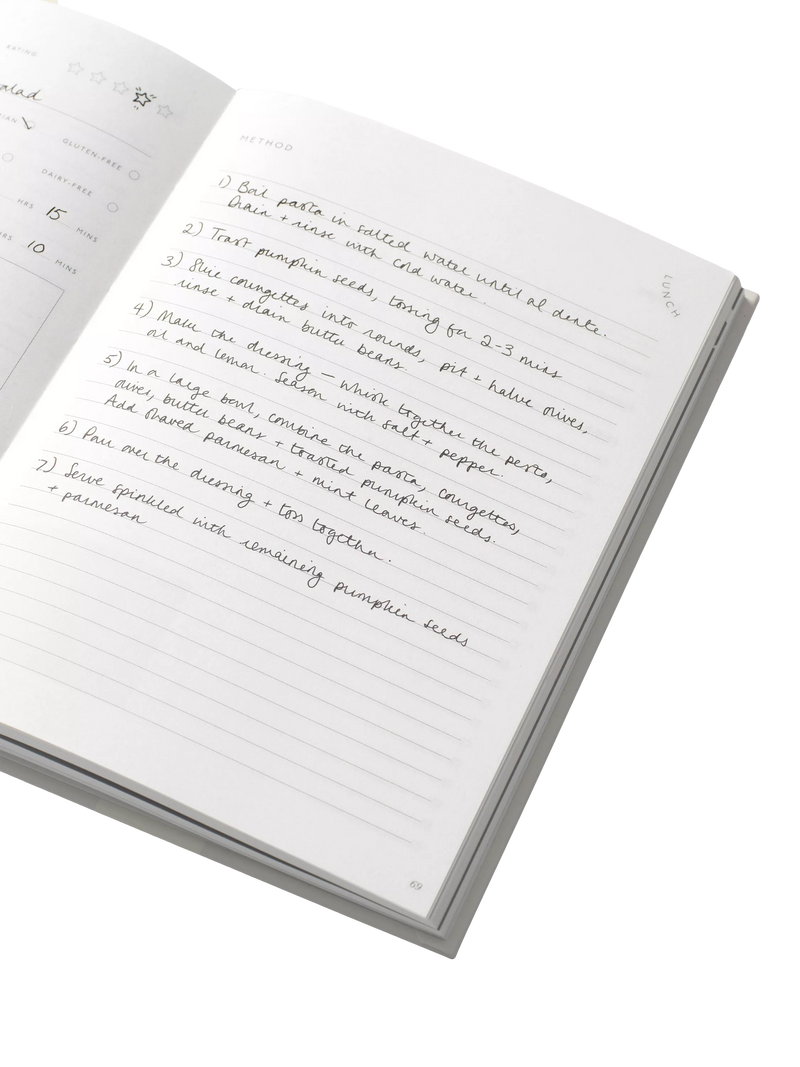 EATING
alad
GLUTEN-FREE
DAIRY-FREE
HRS 15 MINS
HRS 10 MINS
METHOD
1) Boil pasta in salted water until al dente.
Drain + rinse with cold water.
2) Toast pumpkin seeds, tossing for 2-3 mins
3) Slice courgettes into rounds, pit + halve olives,
rinse + drain butter beans.
4) Make the dressing — whisk together the pesto,
oil and lemon. Season with salt + pepper.
5) In a large bowl, combine the pasta, courgettes,
olives, butter beans + toasted pumpkin seeds.
Add shaved parmesan + mint leaves.
6) Pour over the dressing + toss together.
7) Serve sprinkled with remaining pumpkin seeds
+ parmesan
LUNCH
69